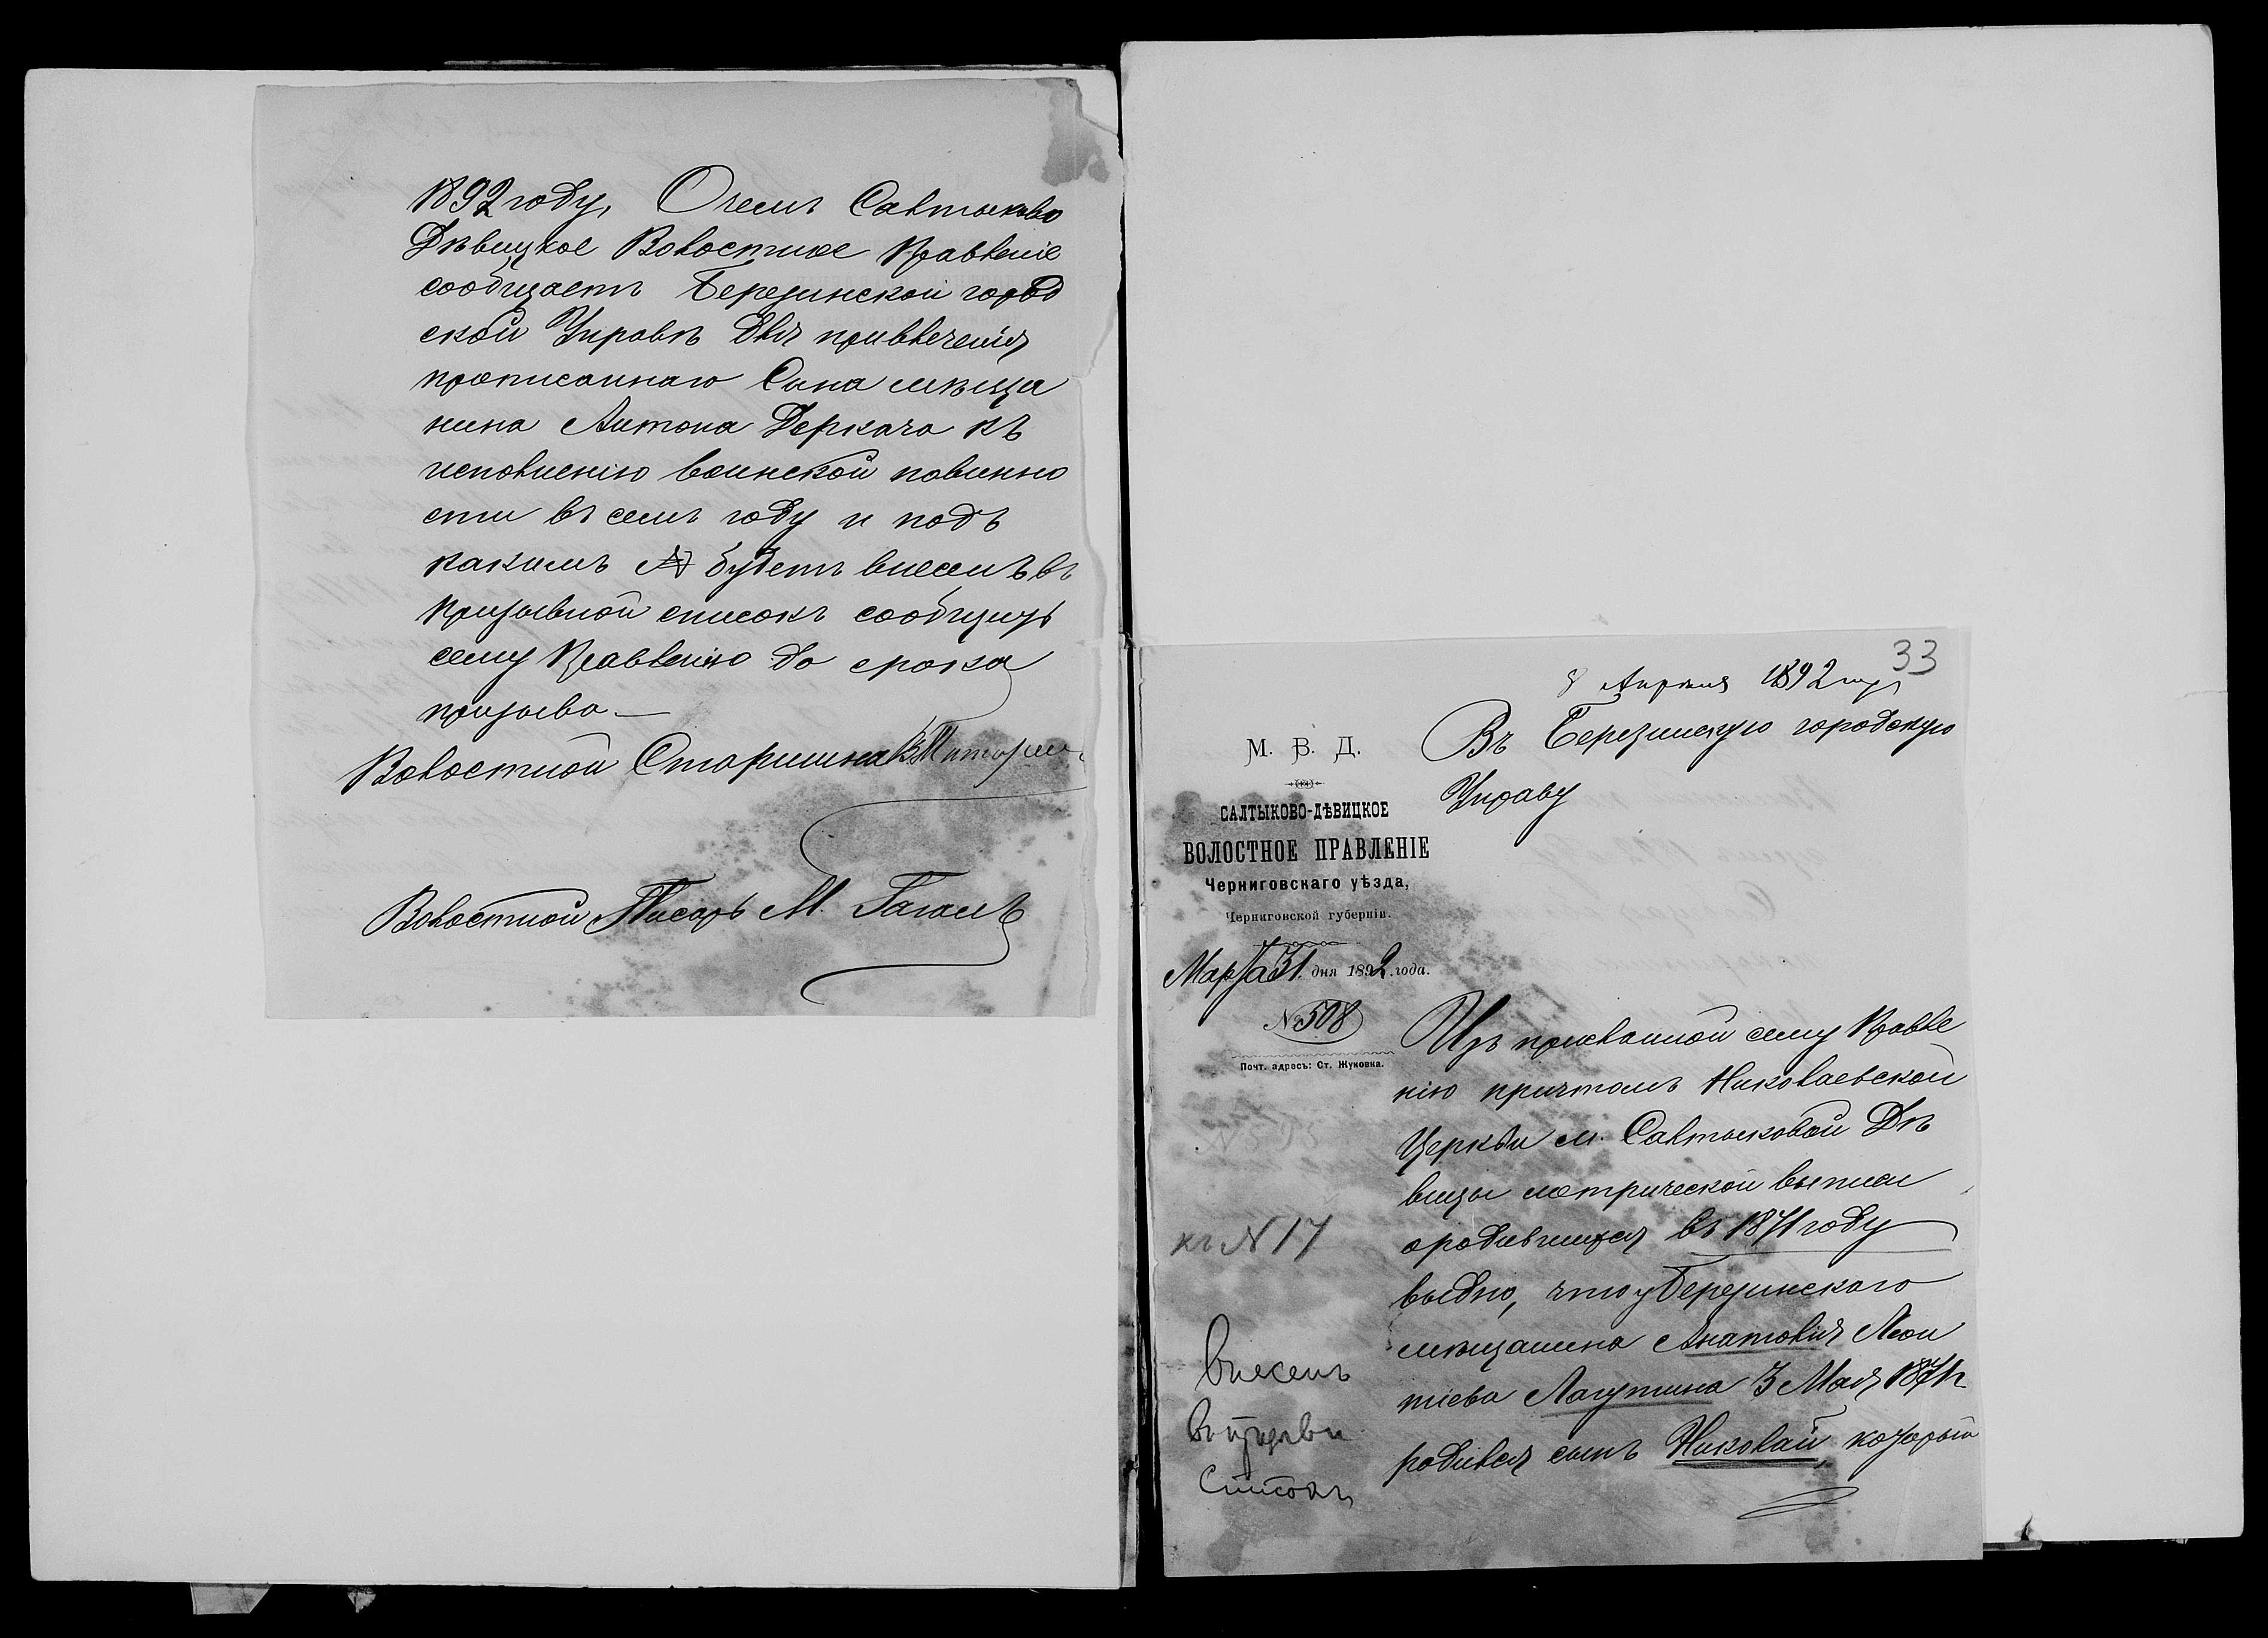 1892 году, О чемъ Салтыково
Дѣвицкое Волостное Правленіе
сообщаетъ Березинской город
ской Управѣ для привлеченія
прописаннаго Сына мѣща
нина Антона Деркача къ
исполненію воинской повинно
сти въ семъ году и подъ
какимъ № будетъ внесенъ въ
призывной списокъ сообщить
сему Правленію до срока
призыва.—
Волостной Старшина
Волостной Писарь М.
33
8 Апрѣля 1892 года
Въ Березинскую городскую
Управу
М. В. Д.
САЛТЫКОВО-ДѢВИЦКОЕ
ВОЛОСТНОЕ ПРАВЛЕНІЕ
Черниговскаго уѣзда,
Черниговской губерніи.
Марта 31 дня 1892 года.
№ 508
Почт. адресъ: Ст. Жуковка.
Изъ присланной сему Правле
нію причтомъ Николаевской
Церкви м. Салтыковой Дѣ
вицы метрической выписи
о родившихся въ 1871 году
видно, что у Березинского
мѣщанина Анатолія Леон
тіева Лагутина 3 Мая 1871 г
родился сынъ Николай, который
къ № 17
Внесенъ
въ призывн
списокъ